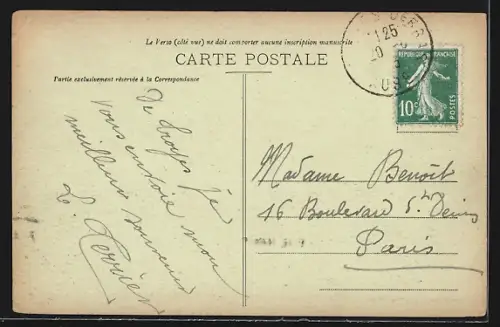 Le Verso (côté vu) ne doit comporter aucune inscription manuscrite
CARTE POSTALE
Partie exclusivement réservée à la Correspondance
De Troyes je
vous envoie mon
meilleur souvenir
RÉPUBLIQUE FRANÇAISE
10c
POSTES
Madame Benoît
46 Boulevard St Denis
Paris